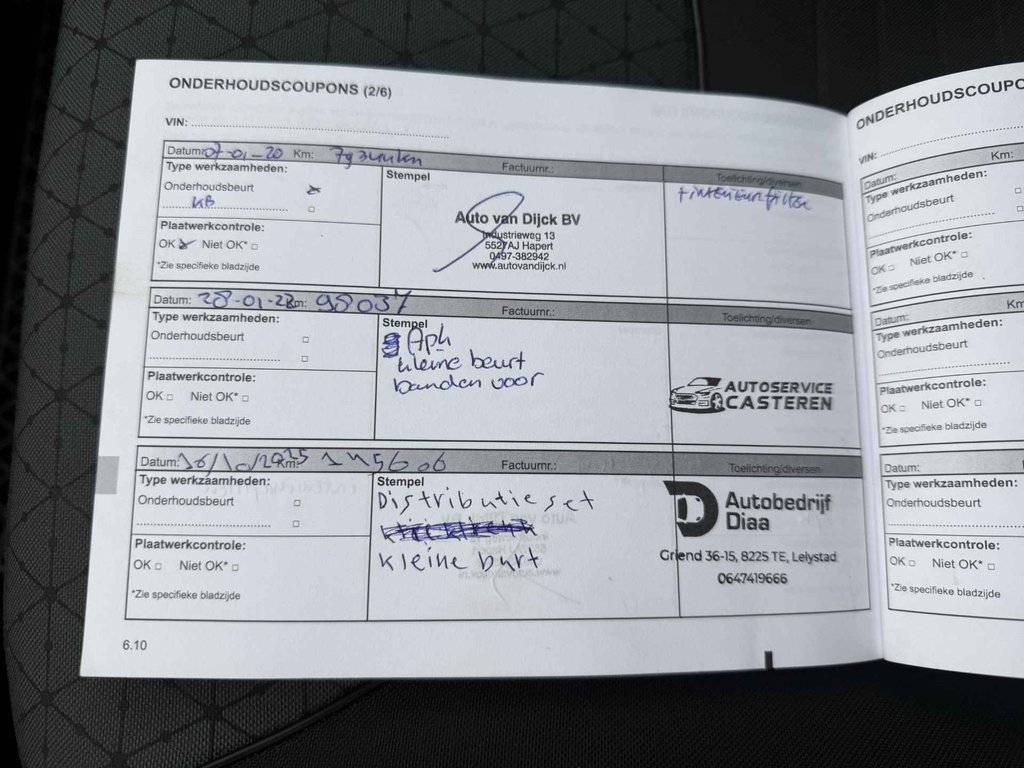 ONDERHOUDSCOUPONS (2/6)
VIN:
Datum: 07-01-20 Km: Factuurnr.: Toelichting/diversen
Type werkzaamheden:
Onderhoudsbeurt
KB
Plaatwerkcontrole:
OK Niet OK*
*Zie specifieke bladzijde
Stempel
Auto van Dijck BV
Industrieweg 13
5527AJ Hapert
0497-382942
www.autovandijck.nl
+interieurfilter
Datum: 28-01-22 Km: 98037 Factuurnr.: Toelichting/diversen
Type werkzaamheden:
Onderhoudsbeurt
Plaatwerkcontrole:
OK Niet OK*
*Zie specifieke bladzijde
Stempel
Apk
kleine beurt
banden voor
AUTOSERVICE
CASTEREN
Datum: 16/10/2025 Km: 145606 Factuurnr.: Toelichting/diversen
Type werkzaamheden:
Onderhoudsbeurt
Plaatwerkcontrole:
OK Niet OK*
*Zie specifieke bladzijde
Stempel
Distributie set
kleine burt
Autobedrijf
Diaa
Griend 36-15, 8225 TE, Lelystad
0647419666
6.10
ONDERHOUDSCOUPO
VIN:
Datum: Km:
Type werkzaamheden:
Onderhoudsbeurt
Plaatwerkcontrole:
OK Niet OK*
*Zie specifieke bladzijde
Datum: Km
Type werkzaamheden:
Onderhoudsbeurt
Plaatwerkcontrole:
OK Niet OK*
*Zie specifieke bladzijde
Datum:
Type werkzaamheden:
Onderhoudsbeurt
Plaatwerkcontrole:
OK Niet OK*
*Zie specifieke bladzijde